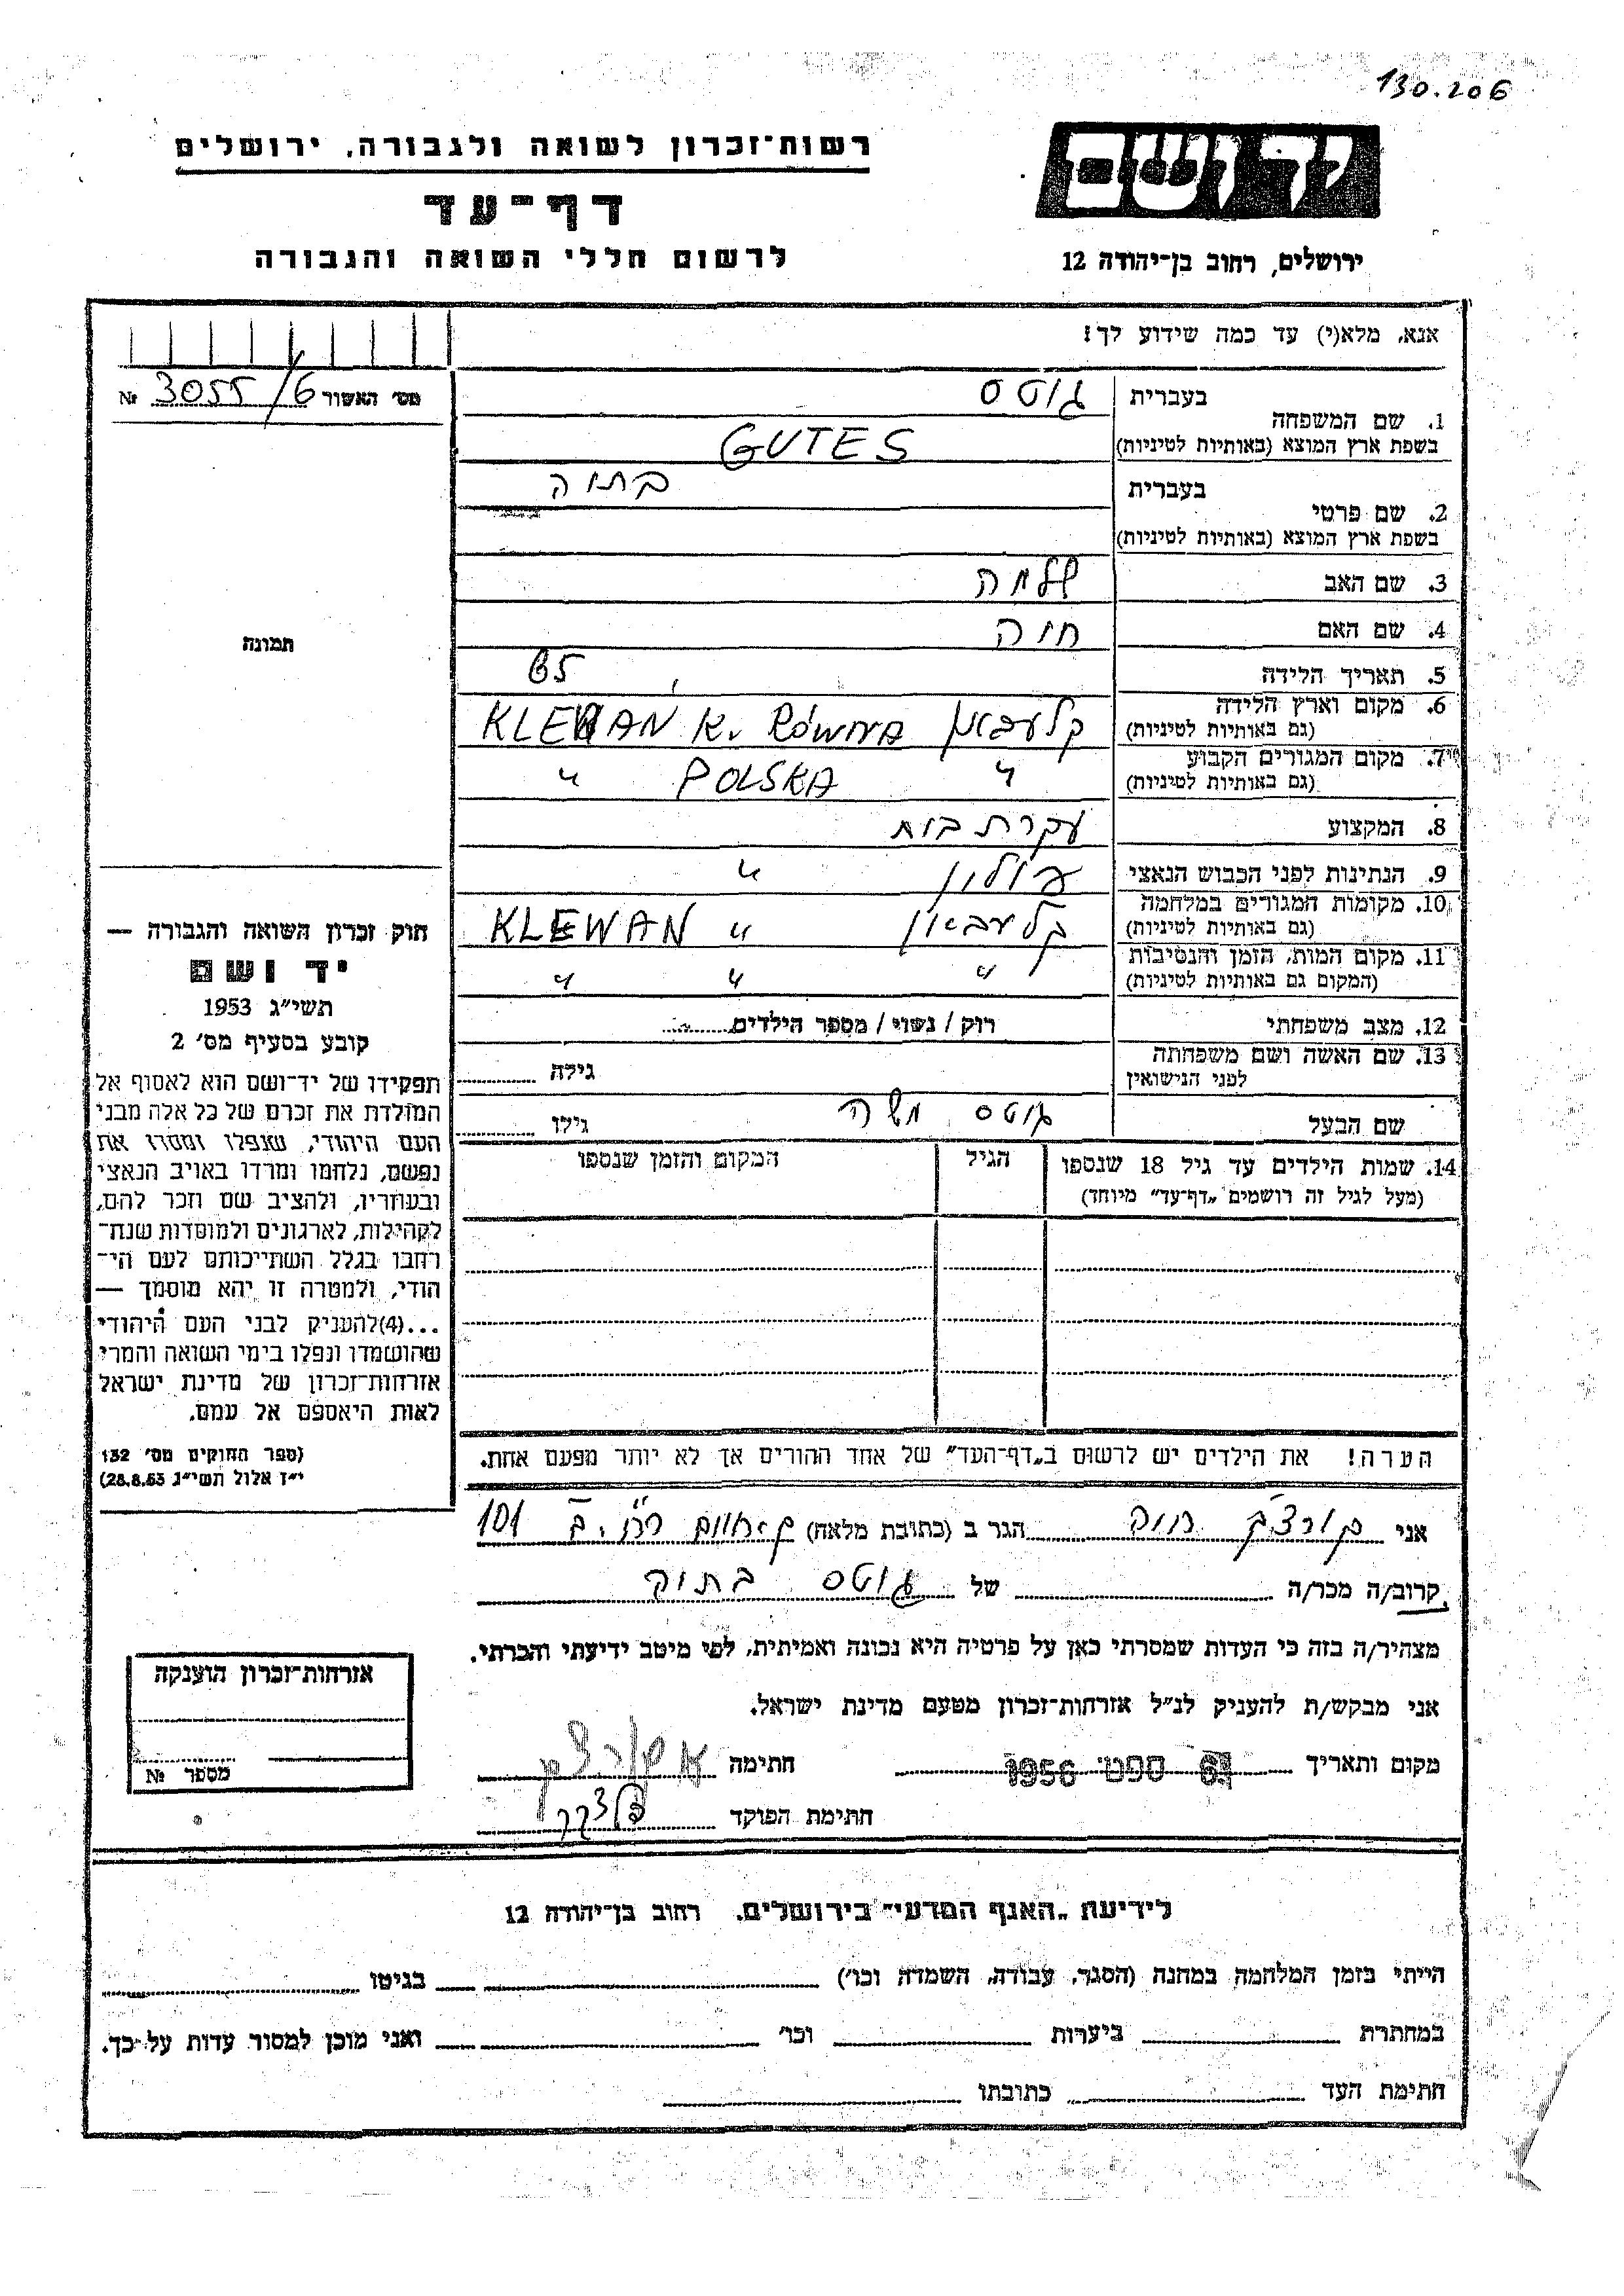 130.206
יד ושם
רשות־זכרון לשואה ולגבורה, ירושלים
דף־עד
ירושלים, רחוב בן־יהודה 12
לרשום חללי השואה והגבורה
אנא, מלא(י) עד כמה שידוע לך!
מס׳ האשור 3055/6 №
1. שם המשפחה בעברית גוטס
בשפת ארץ המוצא (באותיות לטיניות) GUTES
2. שם פרטי בעברית בתיה
בשפת ארץ המוצא (באותיות לטיניות)
3. שם האב שלמה
4. שם האם חוה
5. תאריך הלידה 65
6. מקום וארץ הלידה
(גם באותיות לטיניות) קלעבאן KLEWAN K. RÓWNA
7. מקום המגורים הקבוע
(גם באותיות לטיניות) " POLSKA "
8. המקצוע עקרת בית
9. הנתינות לפני הכבוש הנאצי פולין "
10. מקומות המגורים במלחמה
(גם באותיות לטיניות) קלעבאן " KLEWAN
11. מקום המות, הזמן והנסיבות
(המקום גם באותיות לטיניות) " " "
12. מצב משפחתי רוק / נשוי / מספר הילדים
13. שם האשה ושם משפחתה
לפני הנישואין גילה
שם הבעל גוטס משה גילו
14. שמות הילדים עד גיל 18 שנספו הגיל המקום והזמן שנספו
(מעל לגיל זה רושמים „דף־עד” מיוחד)
הערה! את הילדים יש לרשום ב„דף־העד” של אחד ההורים אך לא יותר מפעם אחת.
תמונה
חוק זכרון השואה והגבורה —
יד ושם
תשי״ג 1953
קובע בסעיף מס׳ 2
תפקידו של יד־ושם הוא לאסוף אל
המולדת את זכרם של כל אלה מבני
העם היהודי, שנפלו ומסרו את
נפשם, נלחמו ומרדו באויב הנאצי
ובעוזריו, ולהציב שם וזכר להם,
לקהילות, לארגונים ולמוסדות שנח־
רבו בגלל השתייכותם לעם הי־
הודי, ולמטרה זו יהא מוסמך —
...(4)להעניק לבני העם היהודי
שהושמדו ונפלו בימי השואה והמרי
אזרחות־זכרון של מדינת ישראל
לאות היאספם אל עמם.
(ספר החוקים מס׳ 132
י״ז אלול תשי״ג 28.8.53)
אני הגר ב (כתובת מלאה) 101
קרוב/ה מכר/ה של גוטס בתיה
מצהיר/ה בזה כי העדות שמסרתי כאן על פרטיה היא נכונה ואמיתית, לפי מיטב ידיעתי והכרתי.
אני מבקש/ת להעניק לנ״ל אזרחות־זכרון מטעם מדינת ישראל.
מקום ותאריך ספט׳ 1956 חתימה
חתימת הפוקד
אזרחות־זכרון הוענקה
מספר №
לידיעת „האגף המדעי” בירושלים. רחוב בן־יהודה 12
הייתי בזמן המלחמה במחנה (הסגר, עבודה, השמדה וכו׳) בגיטו
במחתרת ביערות וכו׳ ואני מוכן למסור עדות על כך.
חתימת העד כתובתו